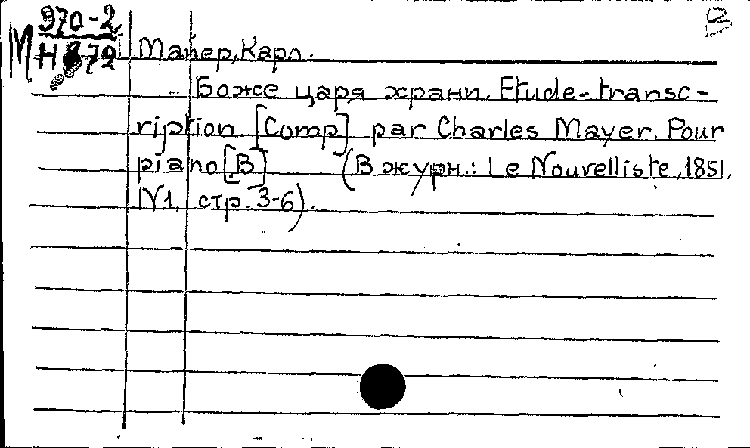 В
М 970-2
Н 872
Майер, Карл.
Боже царя храни. Etude-transc-
ription [Comp] par Charles Mayer. Pour
piano [B] (В журн.: Le Nouvelliste, 1851,
N1, стр. 3-6).